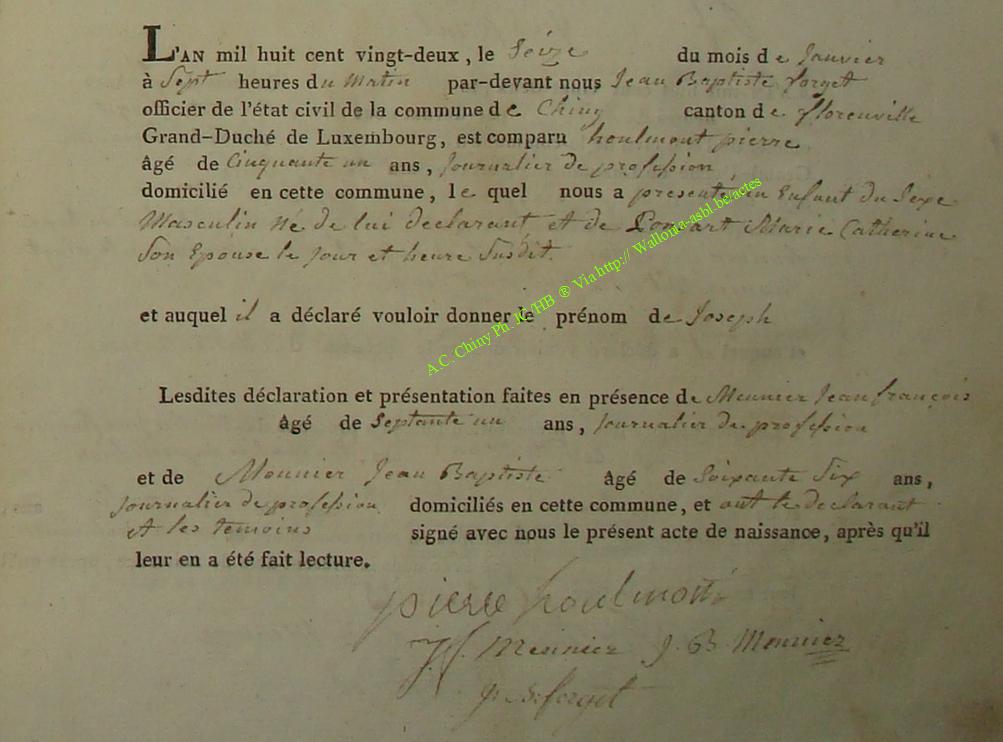 L'AN mil huit cent vingt-deux, le Seize du mois de Janvier
à Sept heures du Matin par-devant nous Jean Baptiste forget
officier de l'état civil de la commune de Chiny canton de florenville
Grand-Duché de Luxembourg, est comparu houlmont pierre
âgé de Cinquante un ans, Journalier de profession
domicilié en cette commune, le quel nous a presenté un Enfant du Sexe
Masculin Né de lui declarant et de Ponsart Marie Catherine
Son Epouse le Jour et heure Susdit.
et auquel il a déclaré vouloir donner le prénom de Joseph
Lesdites déclaration et présentation faites en présence de Meunier Jean françois
âgé de Septante un ans, Journalier de profession
et de Monnier Jean Baptiste âgé de Soixante Six ans,
Journalier de profession domiciliés en cette commune, et ont le declarant
et les temoins signé avec nous le présent acte de naissance, après qu'il
leur en a été fait lecture.
pierre houlmont
J f Meunier J. B. Monnier
J. B. forget
A.C. Chiny Ph. IC/HB ® Via http:// Wallonia-asbl.be/actes